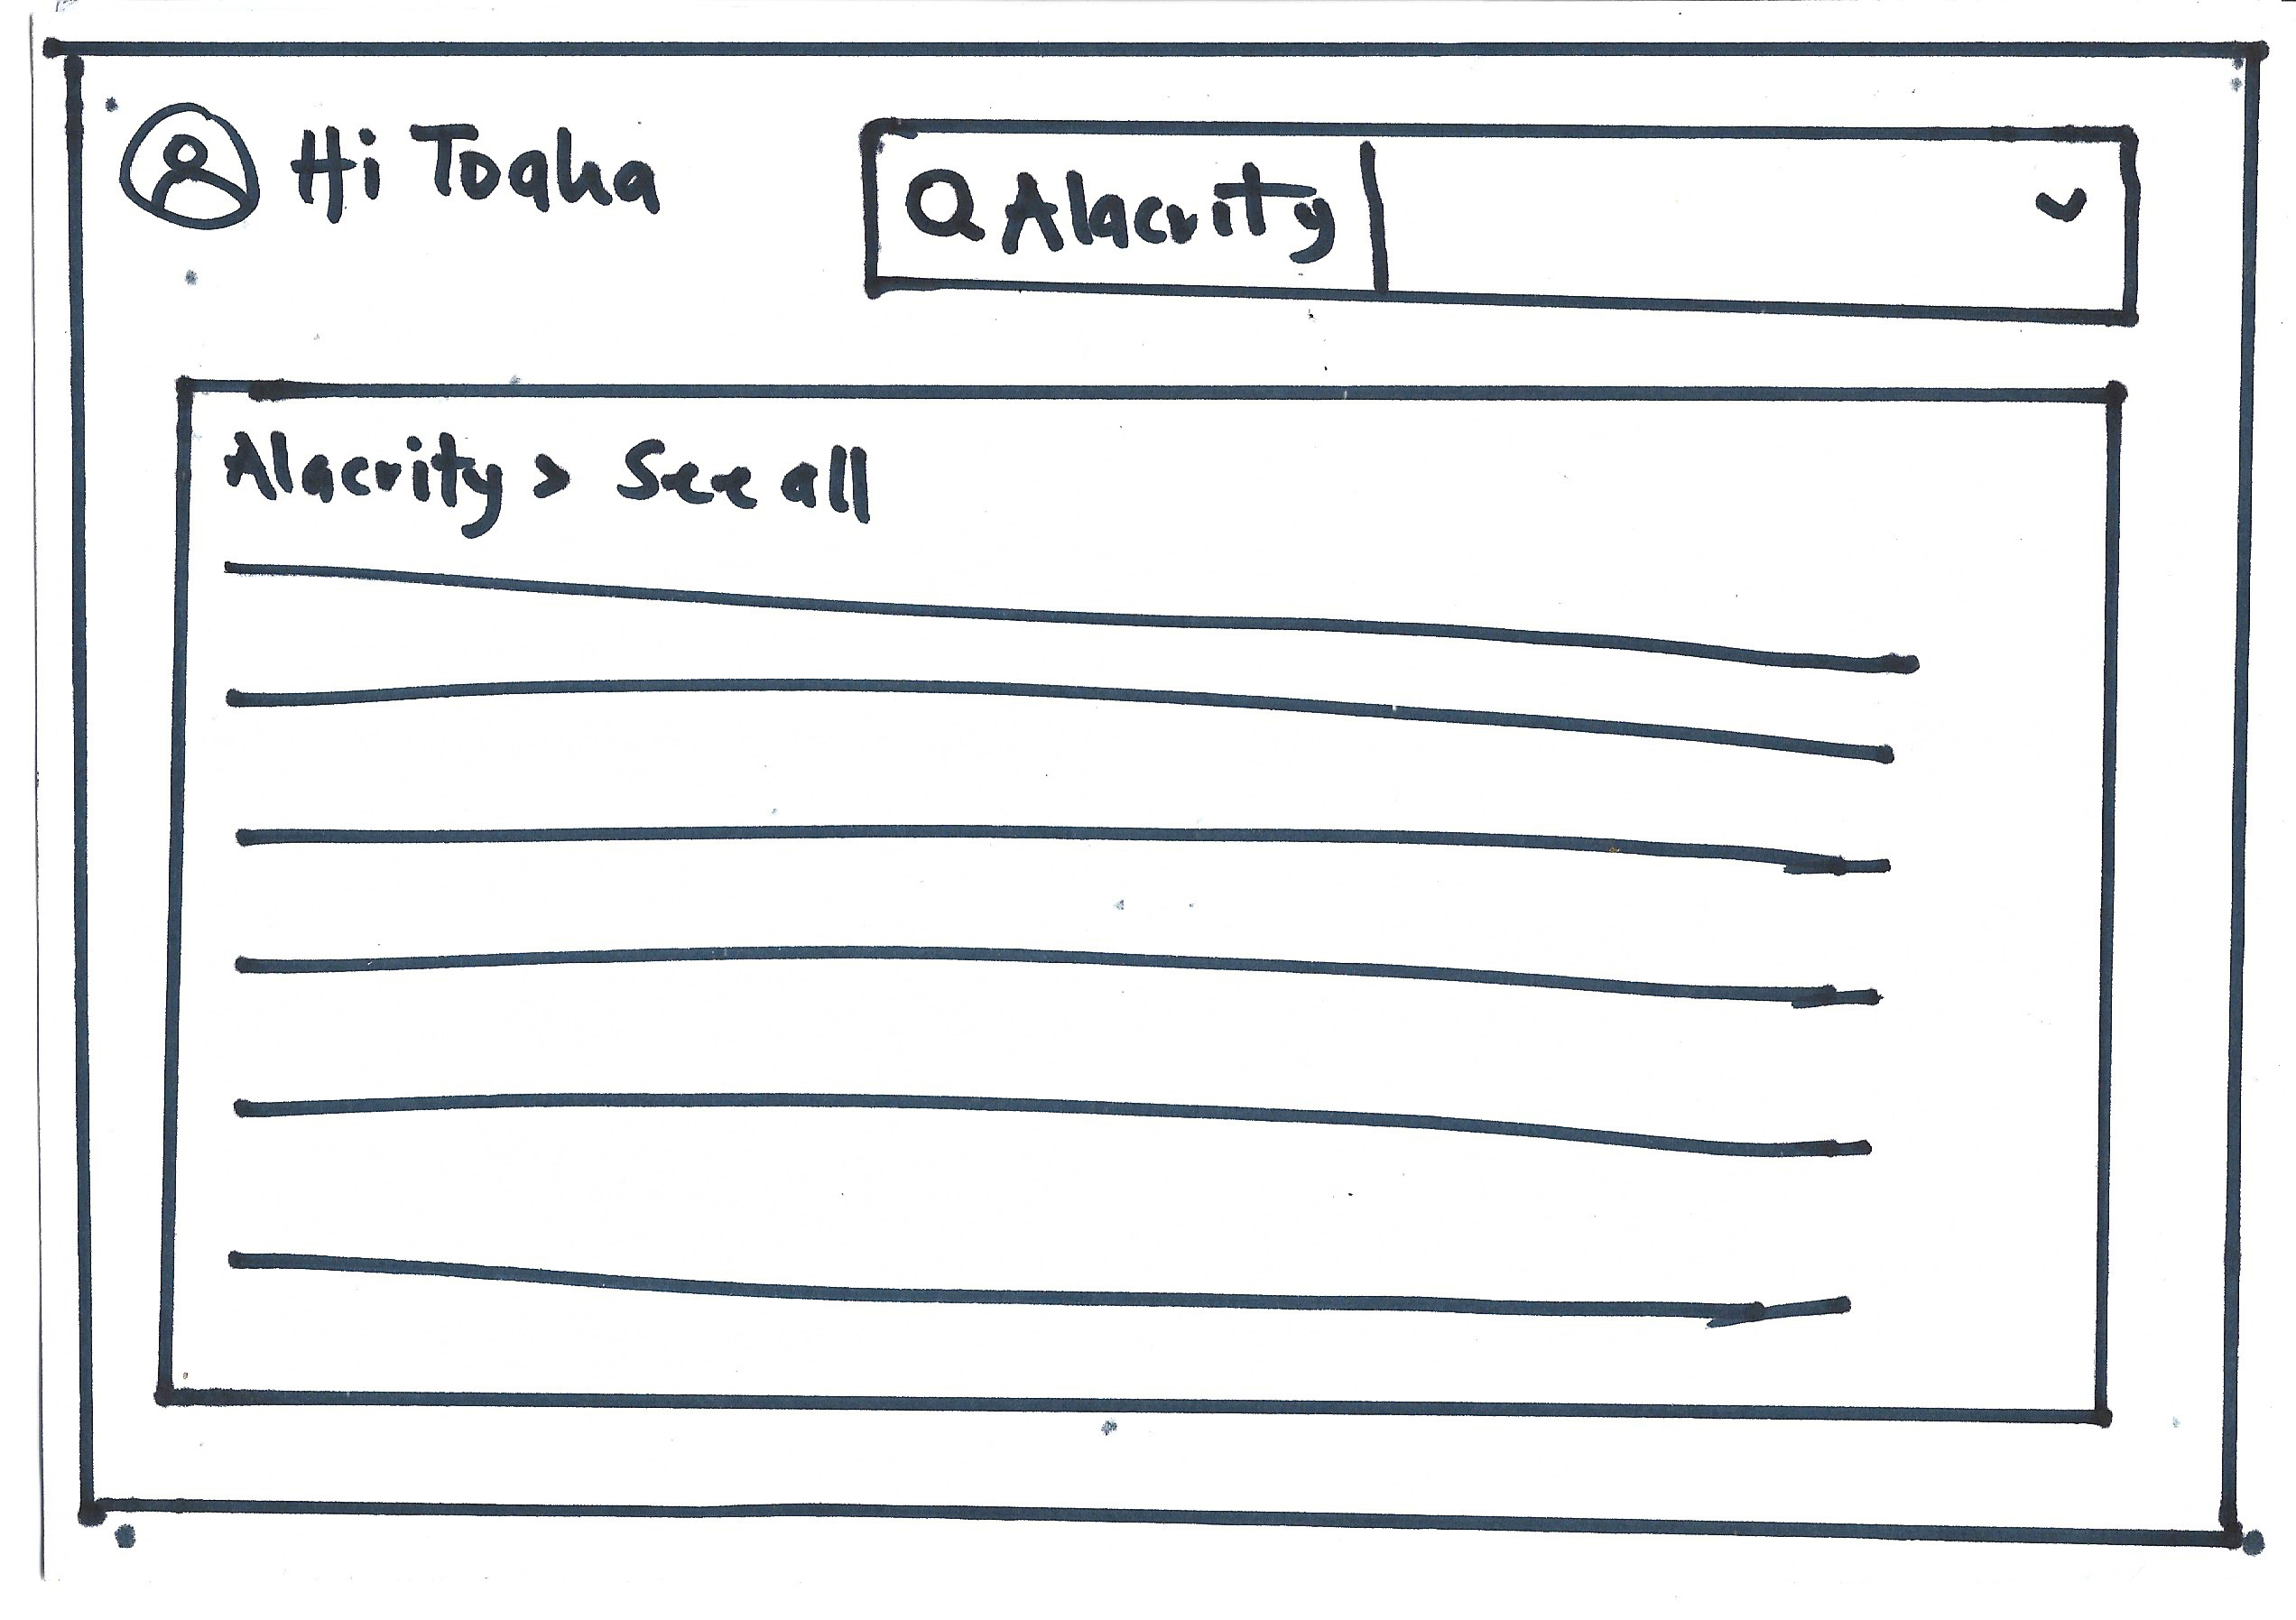 Hi Toaha
Alacrity
Alacrity > See all